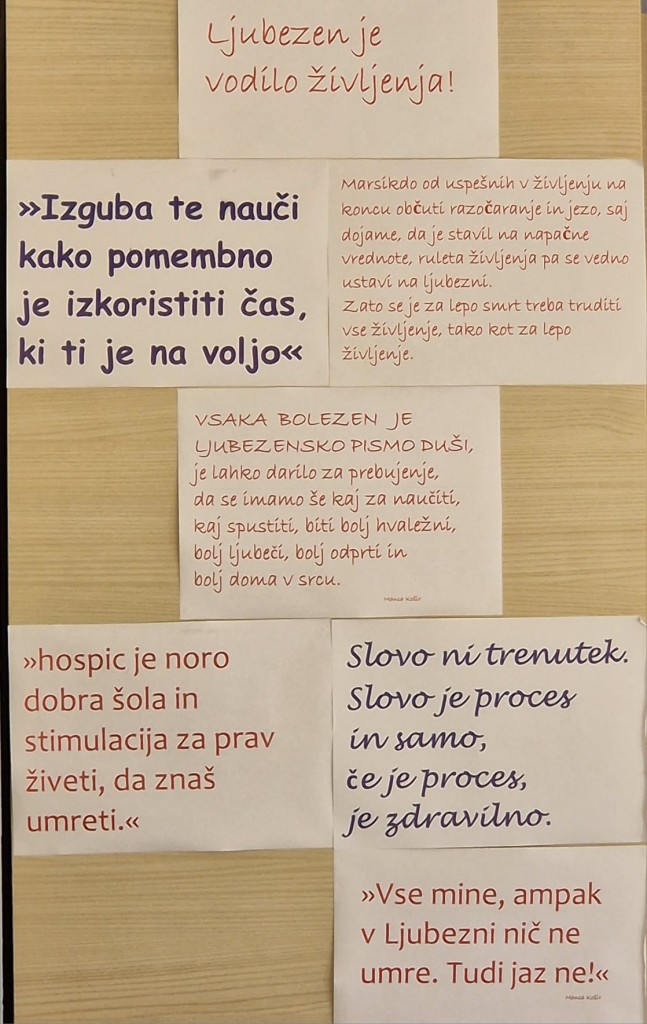 Ljubezen je
vodilo življenja!
»Izguba te nauči
kako pomembno
je izkoristiti čas,
ki ti je na voljo«
Marsikdo od uspešnih v življenju na
koncu občuti razočaranje in jezo, saj
dojame, da je stavil na napačne
vrednote, ruleta življenja pa se vedno
ustavi na ljubezni.
Zato se je za lepo smrt treba truditi
vse življenje, tako kot za lepo
življenje.
VSAKA BOLEZEN JE
LJUBEZENSKO PISMO DUŠI,
je lahko darilo za prebujenje,
da se imamo še kaj za naučiti,
kaj spustiti, biti bolj hvaležni,
bolj ljubeči, bolj odprti in
bolj doma v srcu.
Manca Košir
»hospic je noro
dobra šola in
stimulacija za prav
živeti, da znaš
umreti.«
Slovo ni trenutek.
Slovo je proces
in samo,
če je proces,
je zdravilno.
»Vse mine, ampak
v Ljubezni nič ne
umre. Tudi jaz ne!«
Manca Košir